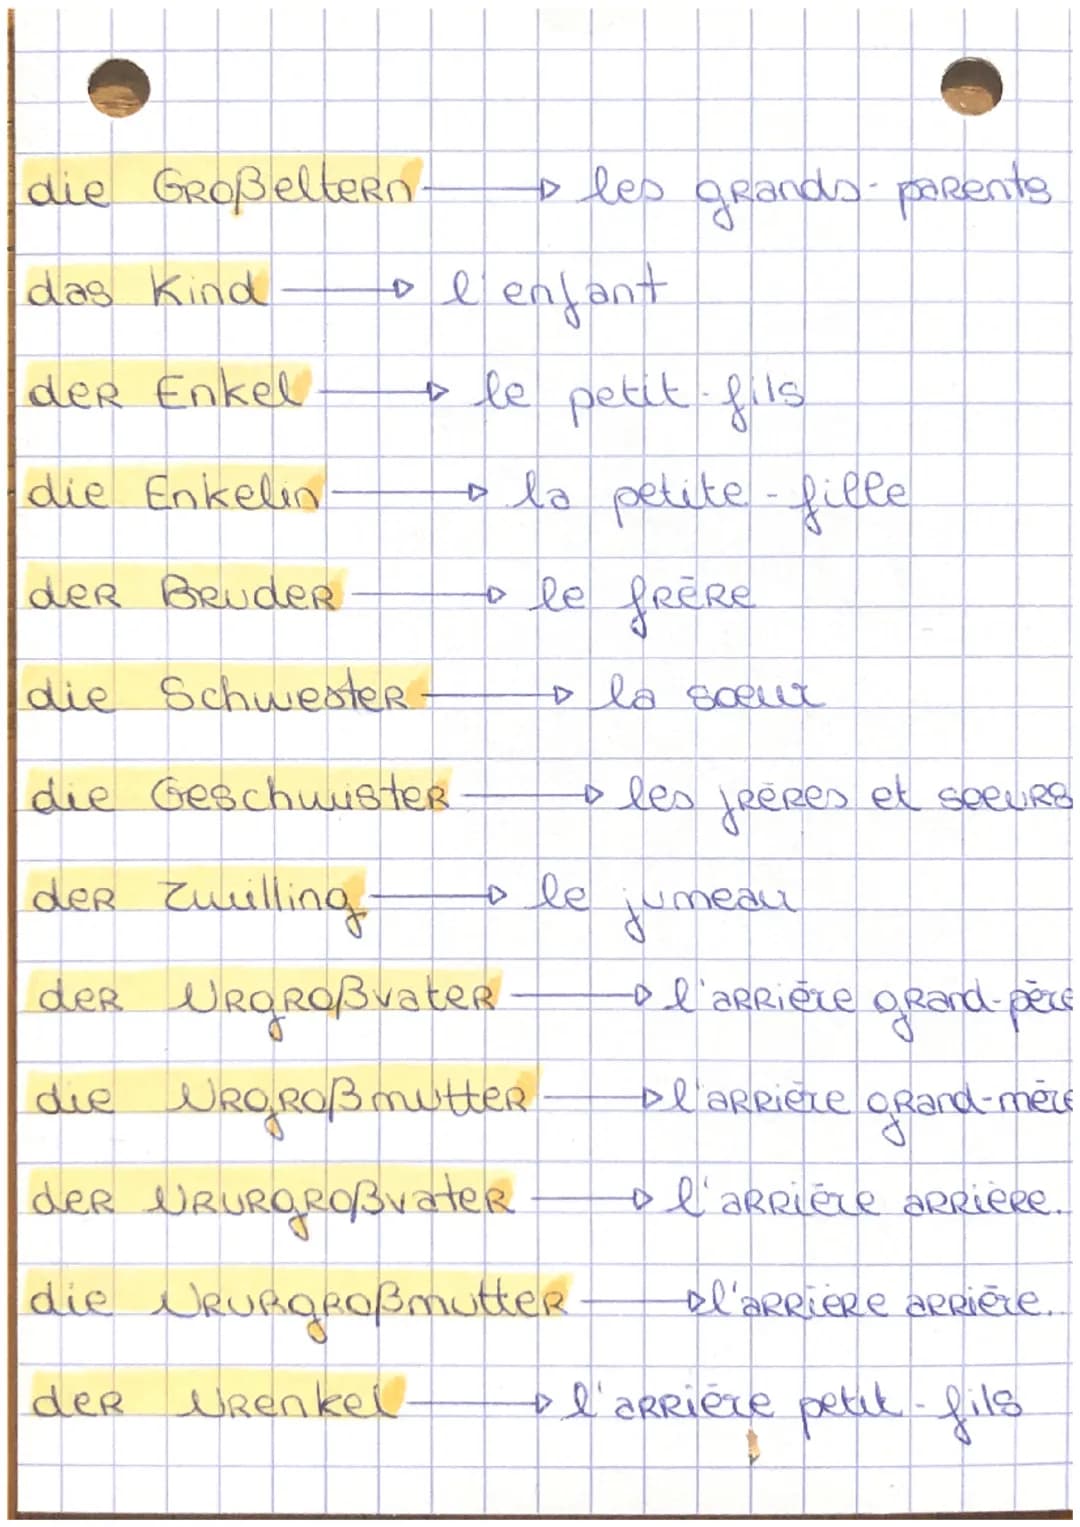 die Großeltern → les grands-parents
das Kind → l'enfant
der Enkel → le petit-fils
die Enkelin → la petite-fille
der Bruder → le frère
die Schwester → la soeur
die Geschwister → les frères et soeurs
der Zwilling → le jumeau
der Urgroßvater → l'arrière grand-père
die Urgroßmutter → l'arrière grand-mère
der Ururgroßvater → l'arrière arrière..
die Ururgroßmutter → l'arrière arrière..
der Urenkel → l'arrière petit-fils